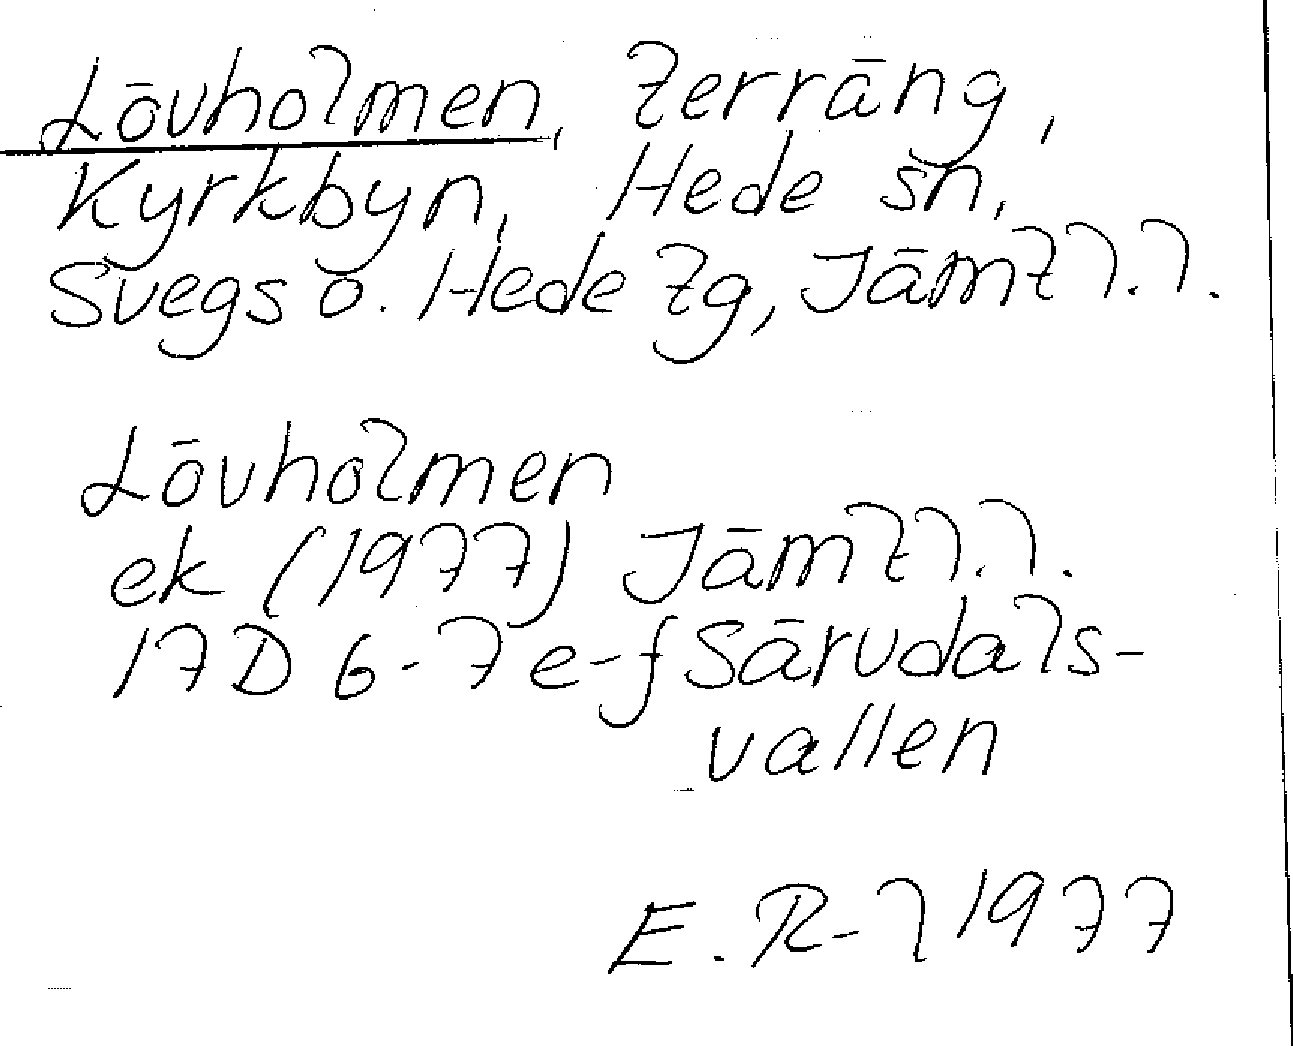 Lövholmen, terräng,
Kyrkbyn, Hede sn,
Svegs o. Hede tg, Jämtl.l.
Lövholmen
ek (1977) Jämtl.l.
17D 6-7 e-f Särvdals-
vallen
E. R-l 1977